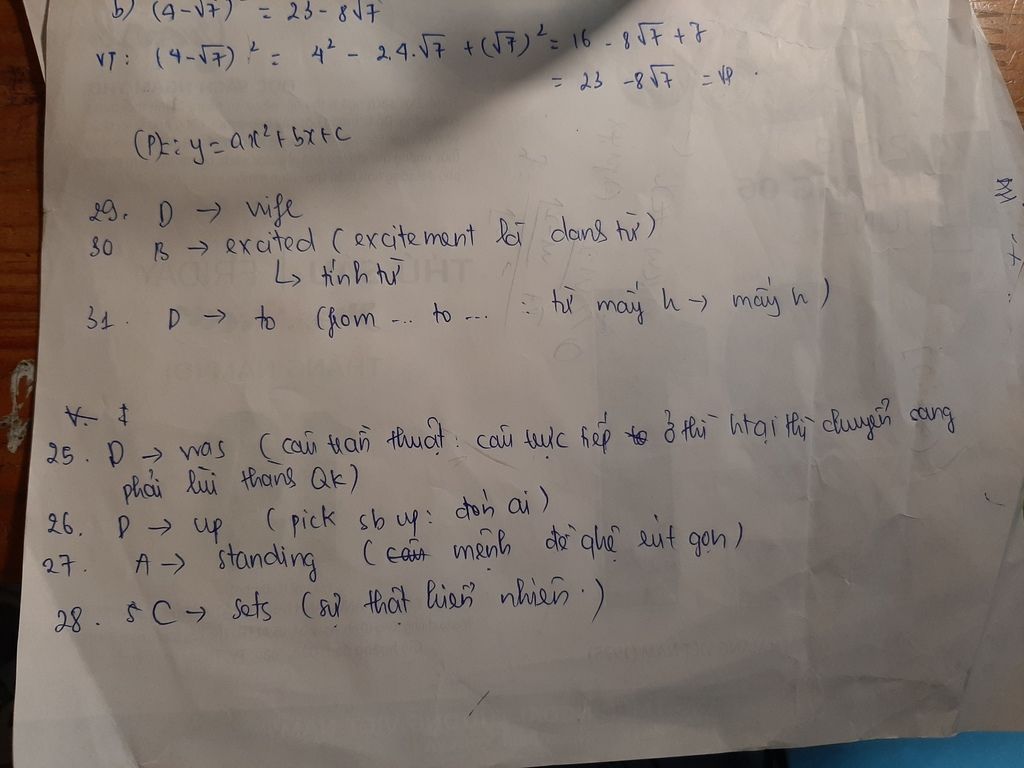 b) (4-√7)² = 23 - 8√7
VT: (4-√7)² = 4² - 2.4.√7 + (√7)² = 16 - 8√7 + 7
= 23 - 8√7 = VP.
(P): y = ax² + bx + c
29. D → wife
30 B → excited (excitement là danh từ)
↳ tính từ
31. D → to (from ... to ... : từ mấy h → mấy h)
V. I
25. D → was (câu trần thuật: câu trực tiếp ở thì htại thì chuyển sang
phải lùi thành Qk)
26. D → up (pick sb up: đón ai)
27. A → standing (câu mệnh đề qhệ rút gọn)
28. C → sets (sự thật hiển nhiên.)